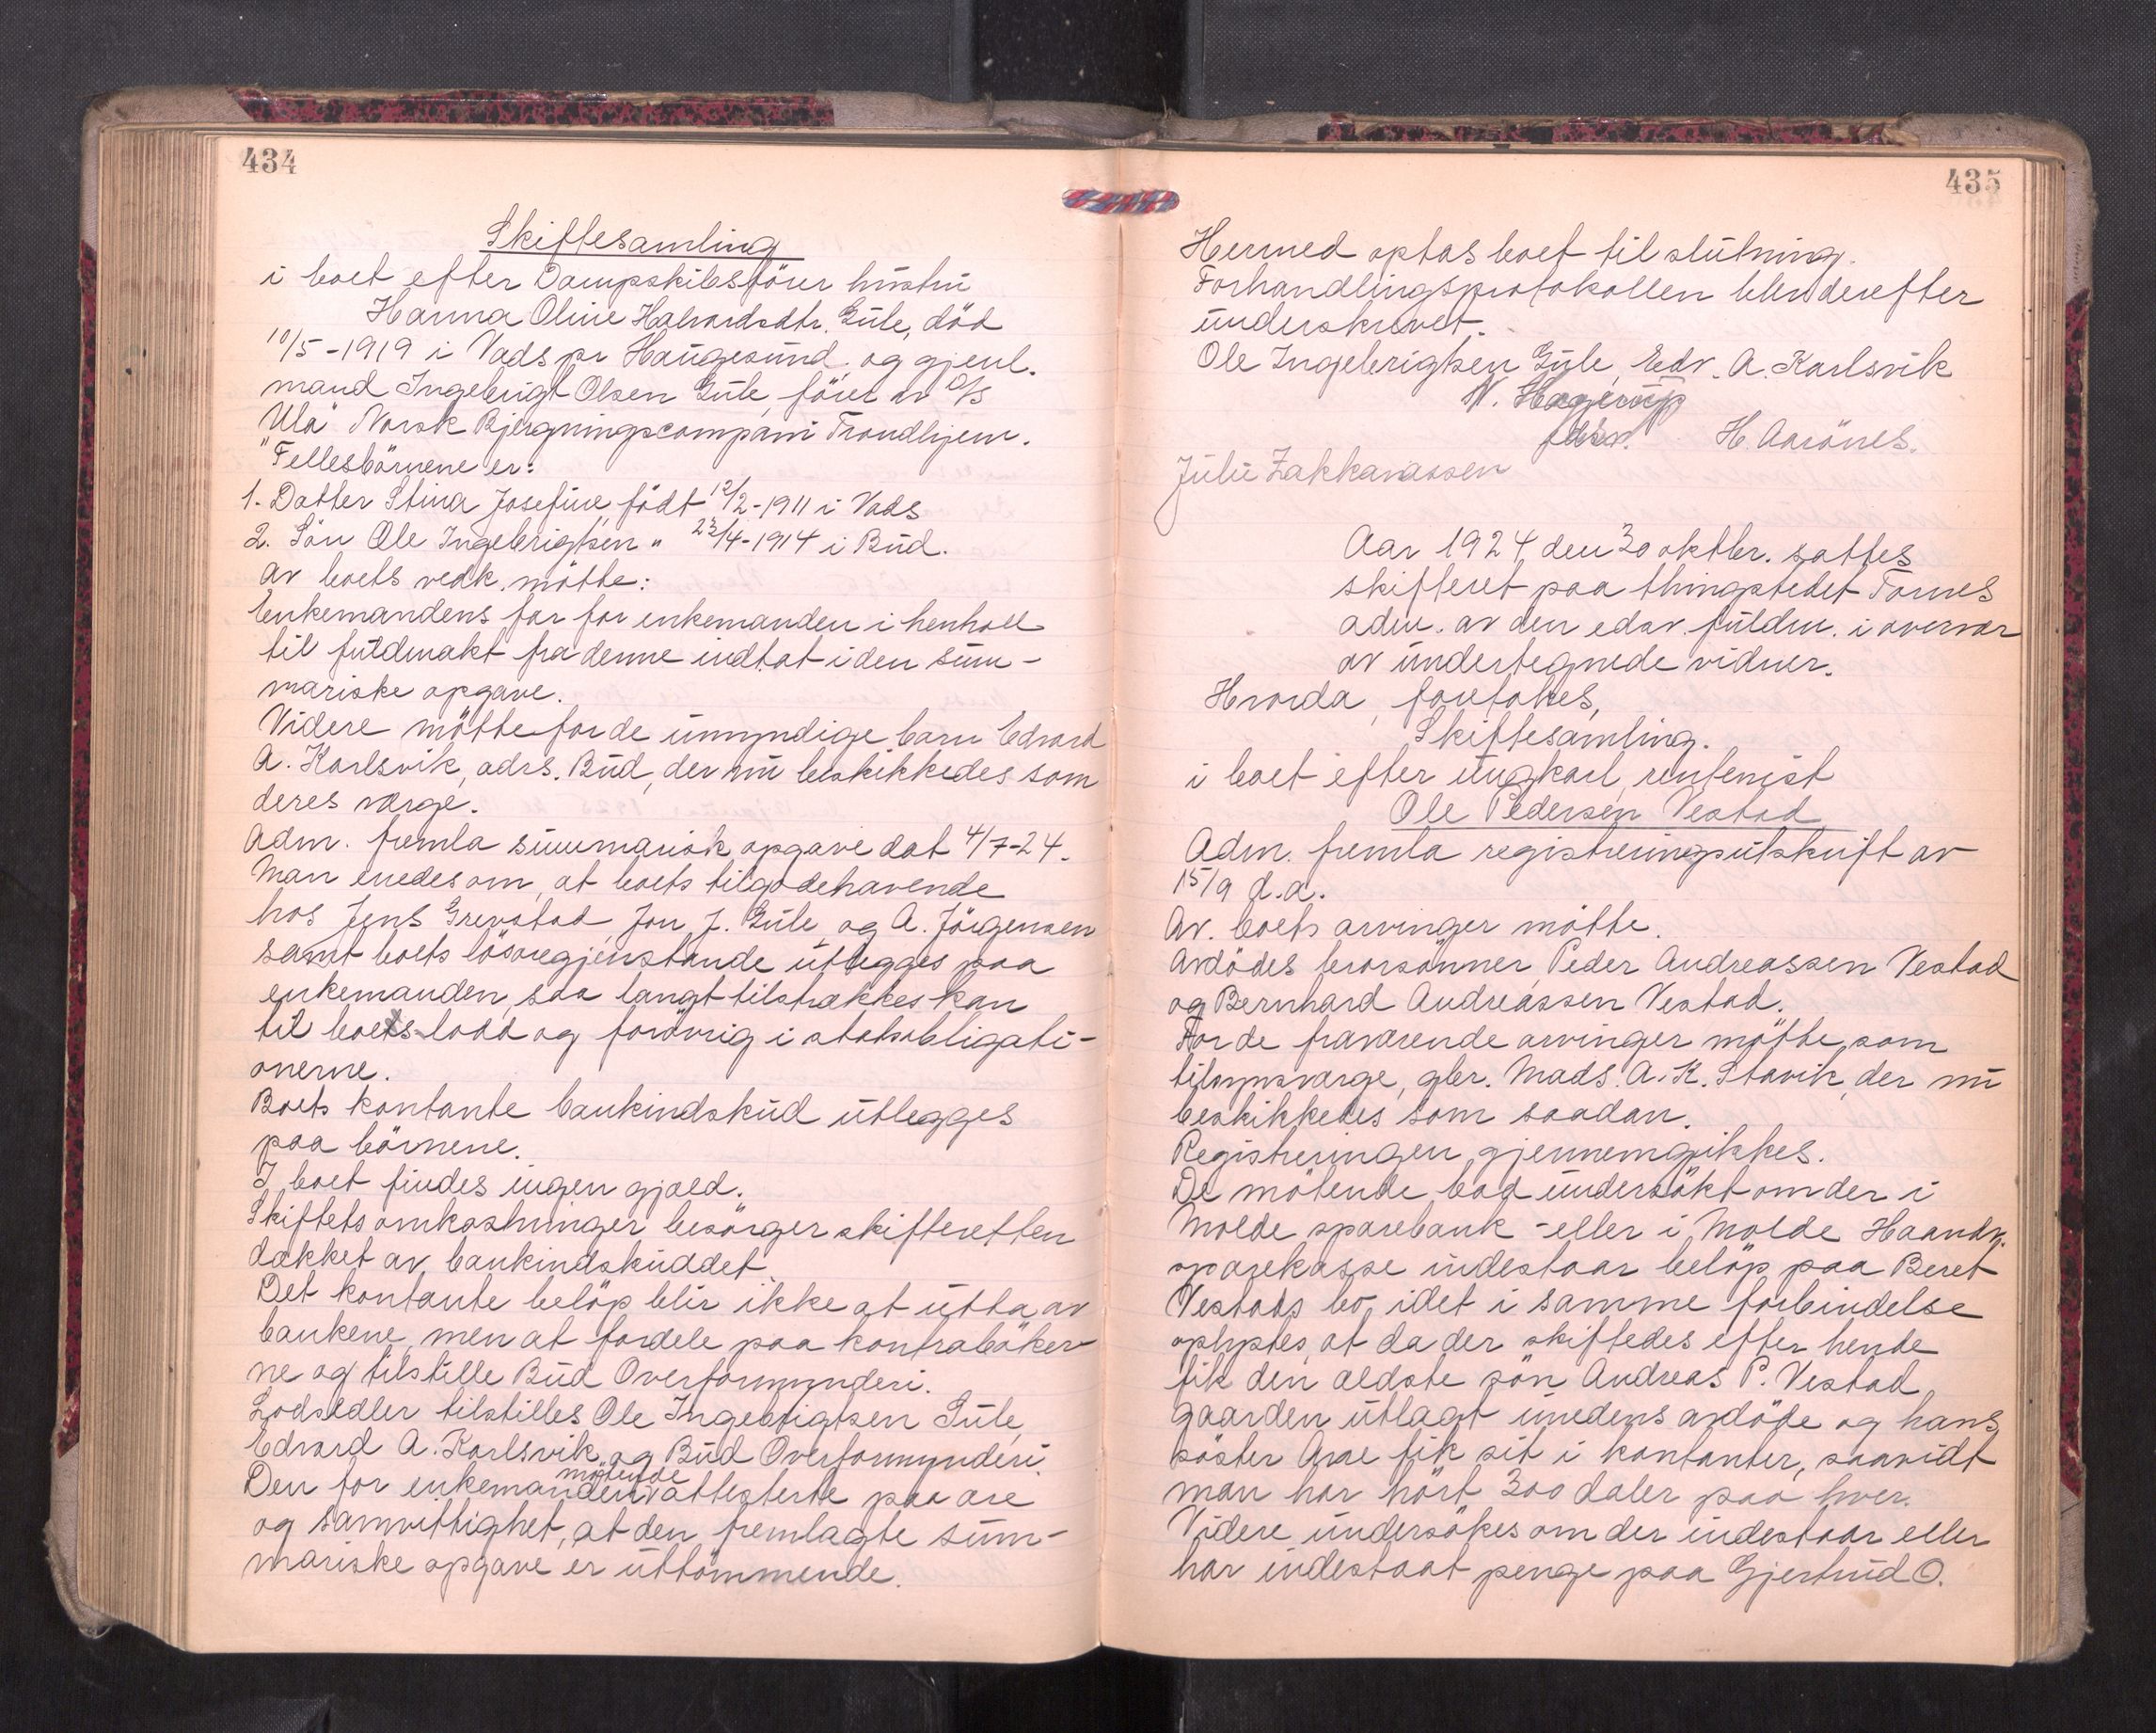 434
Skiftesamling
i boet efter Dampskibsförer hustru
Hanna Oline Halvordsdtr. Gule, död
10/5-1919 i Vads pr Haugesund, og gjenl.
mand Ingebrigt Olsen Gule, förer av D/S
"Ula" Norsk Bjergningscompani Trondhjem.
Fellesbörnene er:
1. Datter Stina Josefine, födt 12/2-1911 i Vads
2. Sön Ole Ingebrigtsen " 23/4-1914 i Bud.
Av boets vedk. mötte:
Enkemandens far for enkemanden i henhold
til fuldmakt fra denne indtat i den sum-
mariske opgave.
Videre mötte for de umyndige barn Edvard
A. Karlsvik, adrs. Bud, der nu beskikkedes som
deres værge.
Adm. fremla summarisk opgave dat 4/7-24.
Man enedes om, at boets tilgodehavende
hos Jens Grevstad, Jon J. Gule og A. Jörgensen
samt boets lösöregjenstande utlegges paa
enkemanden, saa langt tilstrækkes kan
til boets lodd og forövrig i statsobligati-
onerne.
Boets kontante bankindskud utlegges
paa börnene.
I boet findes ingen gjæld.
Skiftets omkostninger besörger skifteretten
dækket av bankindskuddet.
Det kontante belöp blir ikke at utta av
bankene, men at fordele paa kontraböker-
ne og tilstille Bud Overformynderi.
Lodsedler tilstilles Ole Ingebrigtsen Gule,
Edvard A. Karlsvik og Bud Overformynderi.
Den for enkemanden mötende attesterte paa ære
og samvittighet, at den fremlagte sum-
mariske opgave er uttömmende.
435
Hermed optas boet til slutning.
Forhandlingsprotokollen blev derefter
underskrevet.
Ole Ingebrigtsen Gule, Edv. A. Karlsvik
N. Hagerup
edsv. H. Aarönes.
Julie Zakkariassen
Aar 1924 den 30 oktbr. sattes
skifteret paa thingstedet Tornes
adm. av den edsv. fuldm. i overvær
av undertegnede vidner.
Hvorda, foretokes,
Skiftesamling.
i boet efter ungkarl, rentenist
Ole Pedersen Vestad
Adm. fremla registreringsutskrift av
15/9 d.a.
Av. boets arvinger mötte.
Avdödes brorsönner Peder Andreassen Vestad
og Bernhard Andreassen Vestad.
For de fraværende arvinger mötte, som
tilsynsværge, gbr. Mads. A. K. Stavik, der nu
beskikkedes som saadan.
Registreringen gjennemgikkes.
De mötende bad undersökt om der i
Molde sparebank -eller i Molde Haandv.
sparekasse indestaar belöp paa Beret
Vestads bo, idet i samme forbindelse
oplystes, at da der skiftedes efter hende
fik den ældste sön Andreas P. Vestad
gaarden utlagt imedens avdöde og hans
söster Ane fik sit i kontanter, saavidt
man har hört 300 daler paa hver.
Videre undersökes om der indestaar eller
har indestaat penge paa Gjertrud O.